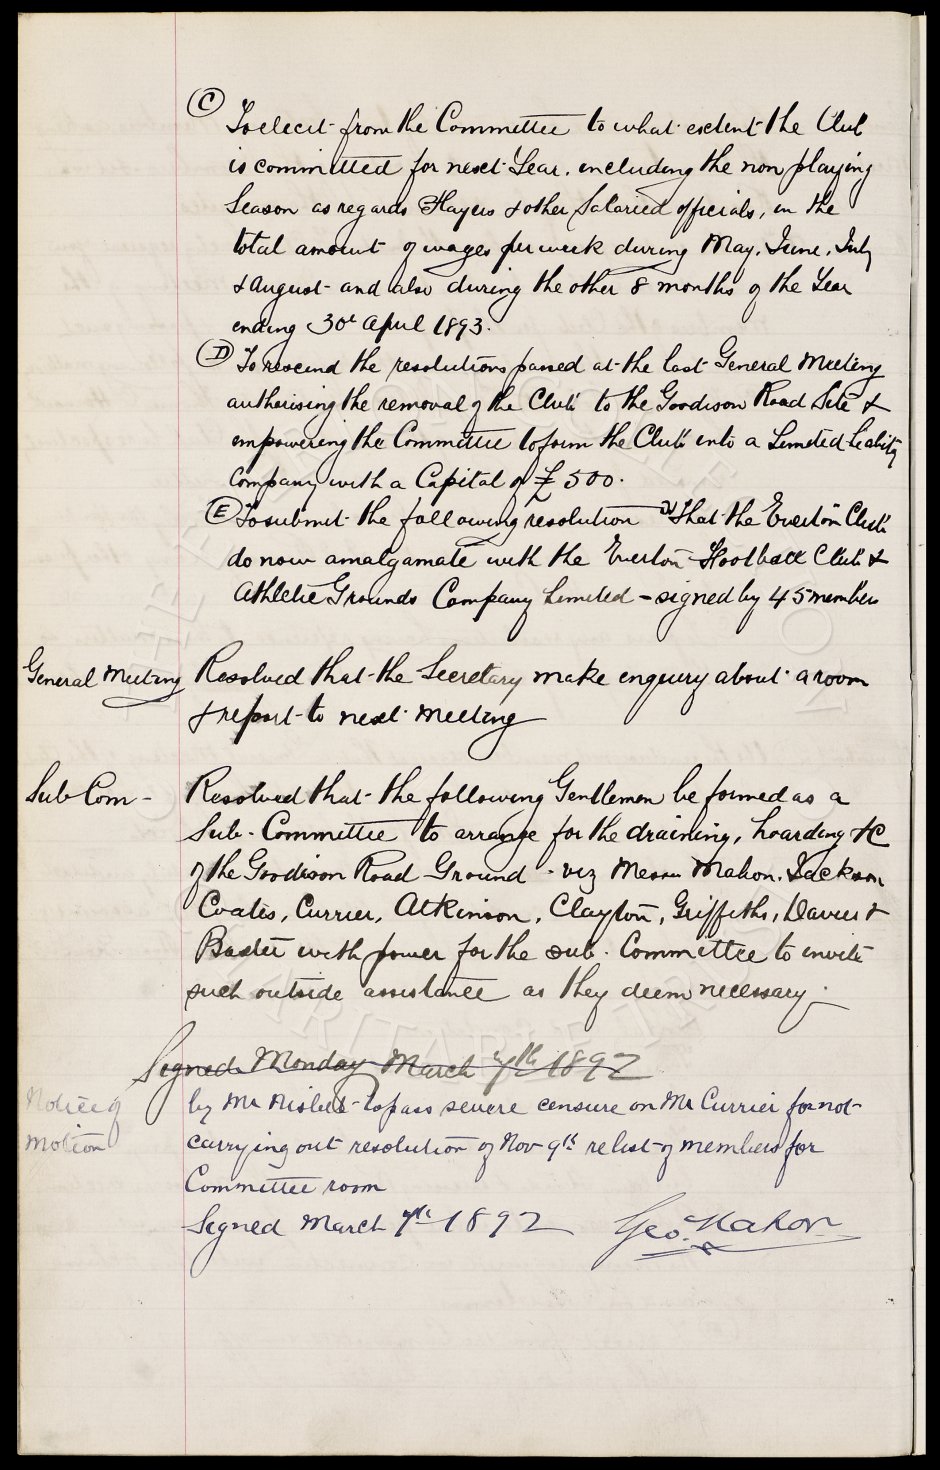 (C) To elicit from the Committee to what extent the Club
is committed for next Year, including the non playing
Season as regards Players & other Salaried officials, in the
total amount of wages per week during May, June, July
& August - and also during the other 8 months of the Year
ending 30th April 1893.
(D) To rescind the resolutions passed at the last General Meeting
authorising the removal of the Club to the Goodison Road Site &
empowering the Committee to form the Club into a Limited Liability
Company with a Capital of £500.
(E) To submit the following resolution "That the Everton Club
do now amalgamate with the Everton Football Club &
Athletic Grounds Company Limited - signed by 45 members
General Meeting Resolved that the Secretary make enquiry about a room
& report to next meeting
Sub Com - Resolved that the following Gentlemen be formed as a
Sub-Committee to arrange for the draining, hoarding &c
of the Goodison Road Ground - viz Messrs Mahon, Jackson
Coates, Currier, Atkinson, Clayton, Griffiths, Davies &
Baxter with power for the sub-Committee to invite
such outside assistance as they deem necessary.
Signed Monday March 7th 1892
Notice of by Mr Nisbet to pass severe censure on Mr Currier for not
Motion carrying out resolution of Nov 9th re list of members for
Committee room
Signed March 7th 1892 Geo. Mahon